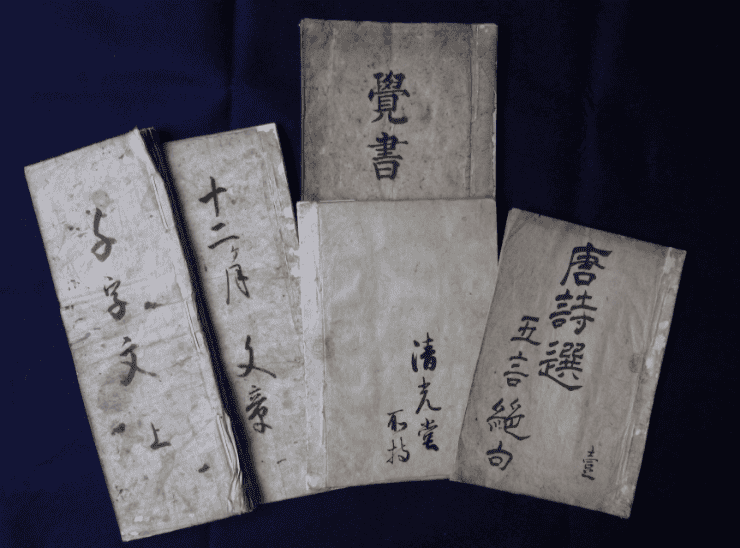 千字文
上
十二ヶ月
文章
覺書
清光堂
所持
唐詩選
五言絶句
壹